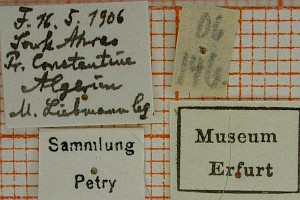 F. N. 5. 1906
Souk Ahras
Pr. Constantine
Algerien
M. Liebmann leg
06
146
Sammlung
Petry
Museum
Erfurt